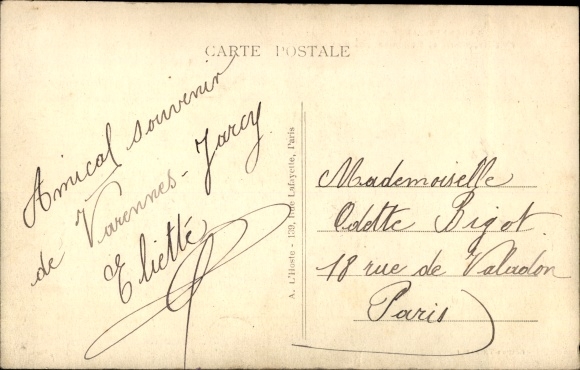 CARTE POSTALE
Amical souvenir
de Varennes-Jarcy
Eliette
A. L'Hoste - 139, Rue Lafayette, Paris
Mademoiselle
Odette Bigot
18 rue de Valadon
Paris